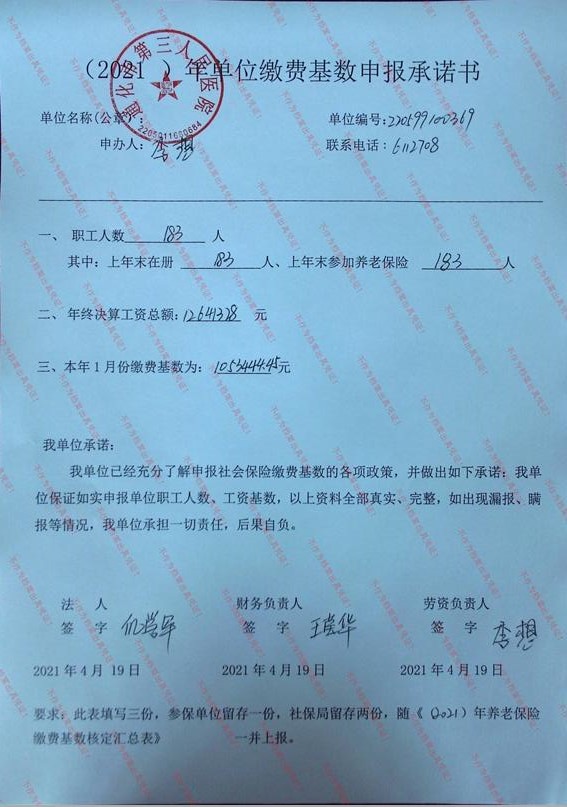 （2021 ）年单位缴费基数申报承诺书
通化市第三人民医院
2205011600684
单位名称(公章):
单位编号:220599100369
申办人: 李想
联系电话: 6112708
一、 职工人数 183 人
其中: 上年末在册 183 人、上年末参加养老保险 183 人
二、 年终决算工资总额: 12641328 元
三、本年1月份缴费基数为: 1053444.45元
我单位承诺:
我单位已经充分了解申报社会保险缴费基数的各项政策, 并做出如下承诺: 我单
位保证如实申报单位职工人数、工资基数, 以上资料全部真实、完整, 如出现漏报、瞒
报等情况, 我单位承担一切责任, 后果自负。
法 人 财务负责人 劳资负责人
签 字 签 字 签 字 李想
2021年4月19日 2021年4月19日 2021年4月19日
要求: 此表填写三份, 参保单位留存一份, 社保局留存两份, 随《（2021）年养老保险
缴费基数核定汇总表》 一并上报。